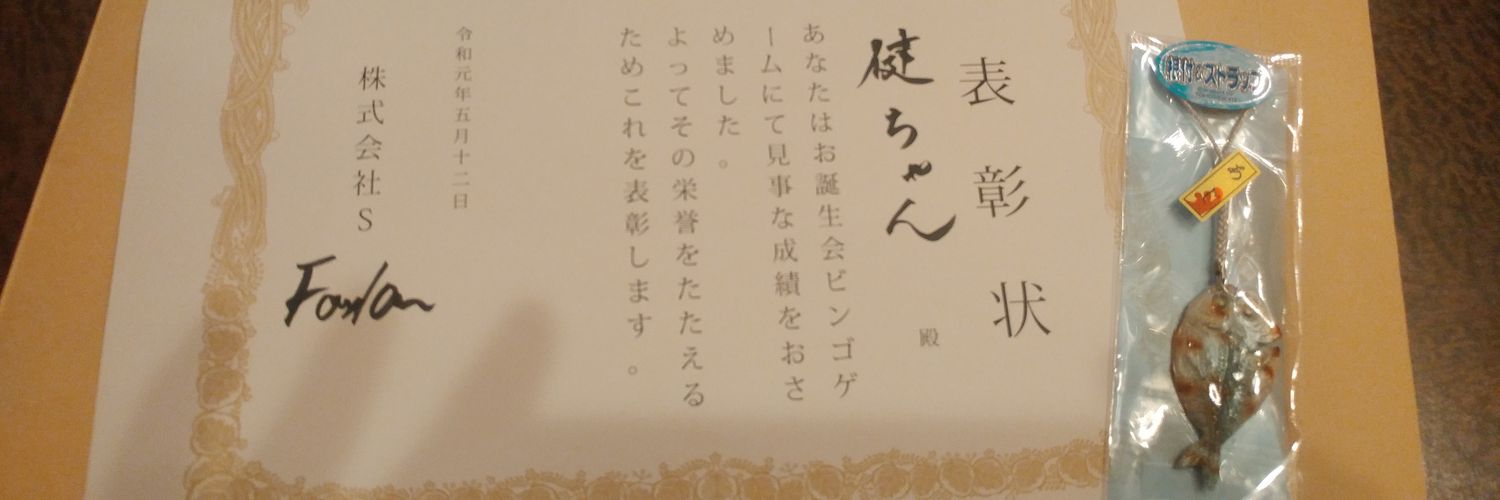 表彰状
健ちゃん
殿
あなたはお誕生会ビンゴゲ
ームにて見事な成績をおさ
めました。
よってその栄誉をたたえる
ためこれを表彰します。
令和元年五月十二日
株式会社S
根付&ストラップ